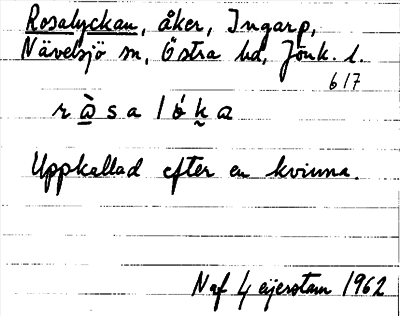 Rosalyckan, åker, Ingarp,
Nävelsjö sn, Östra hd, Jönk. l.
617
Uppkallad efter en kvinna.
N af Geijerstam 1962